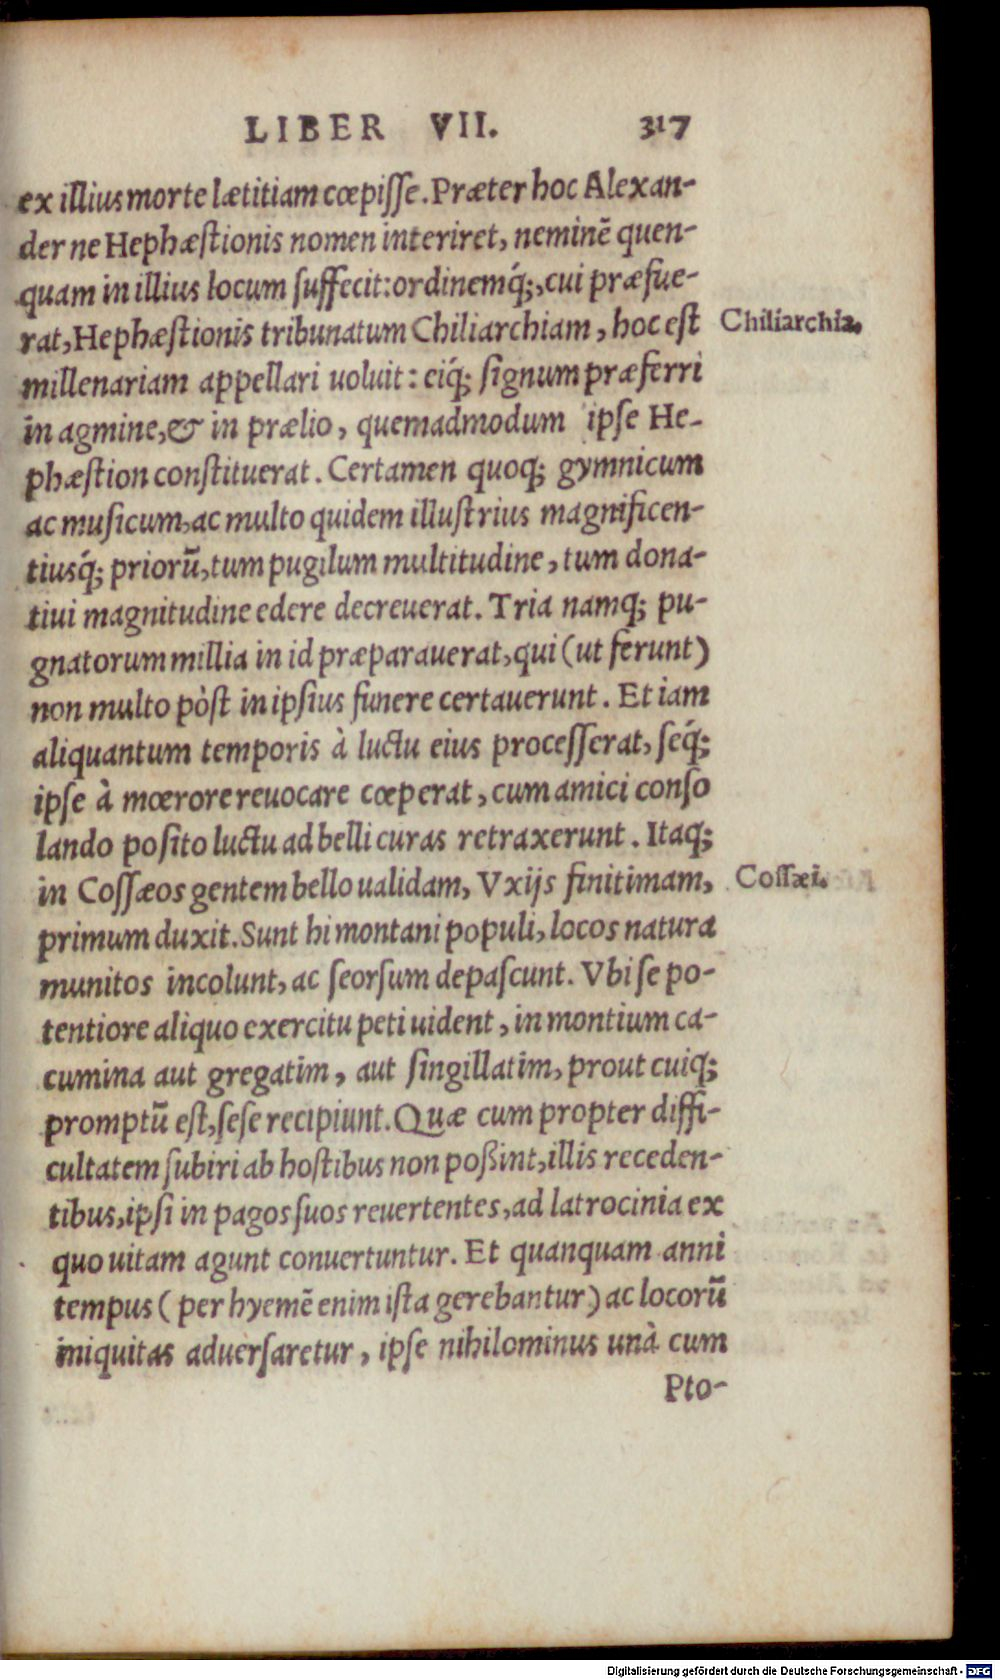 LIBER VII. 317
ex illius morte lætitiam cœpisse. Præter hoc Alexan-
der ne Hephæstionis nomen interiret, neminē quen-
quam in illius locum suffecit: ordinemq́;, cui præfue-
rat, Hephæstionis tribunatum Chiliarchiam, hoc est
Chiliarchia.
millenariam appellari uoluit: eiq́; signum præferri
in agmine, & in prælio, quemadmodum ipse He-
phæstion constituerat. Certamen quoq; gymnicum
ac musicum, ac multo quidem illustrius magnificen-
tiusq́; priorū, tum pugilum multitudine, tum dona-
tiui magnitudine edere decreuerat. Tria namq; pu-
gnatorum millia in id præparauerat, qui (ut ferunt)
non multo pòst in ipsius funere certauerunt. Et iam
aliquantum temporis à luctu eius processerat, seq́;
ipse à mœrore reuocare cœperat, cum amici conso
lando posito luctu ad belli curas retraxerunt. Itaq;
in Cossæos gentem bello ualidam, Vxijs finitimam,
Cossæi.
primum duxit. Sunt hi montani populi, locos natura
munitos incolunt, ac seorsum depascunt. Vbi se po-
tentiore aliquo exercitu peti uident, in montium ca-
cumina aut gregatim, aut singillatim, prout cuiq;
promptū est, sese recipiunt. Quæ cum propter diffi-
cultatem subiri ab hostibus non poßint, illis receden-
tibus, ipsi in pagos suos reuertentes, ad latrocinia ex
quo uitam agunt conuertuntur. Et quanquam anni
tempus (per hyemē enim ista gerebantur) ac locorū
iniquitas aduersaretur, ipse nihilominus unà cum
Pto-
Digitalisierung gefördert durch die Deutsche Forschungsgemeinschaft - DFG